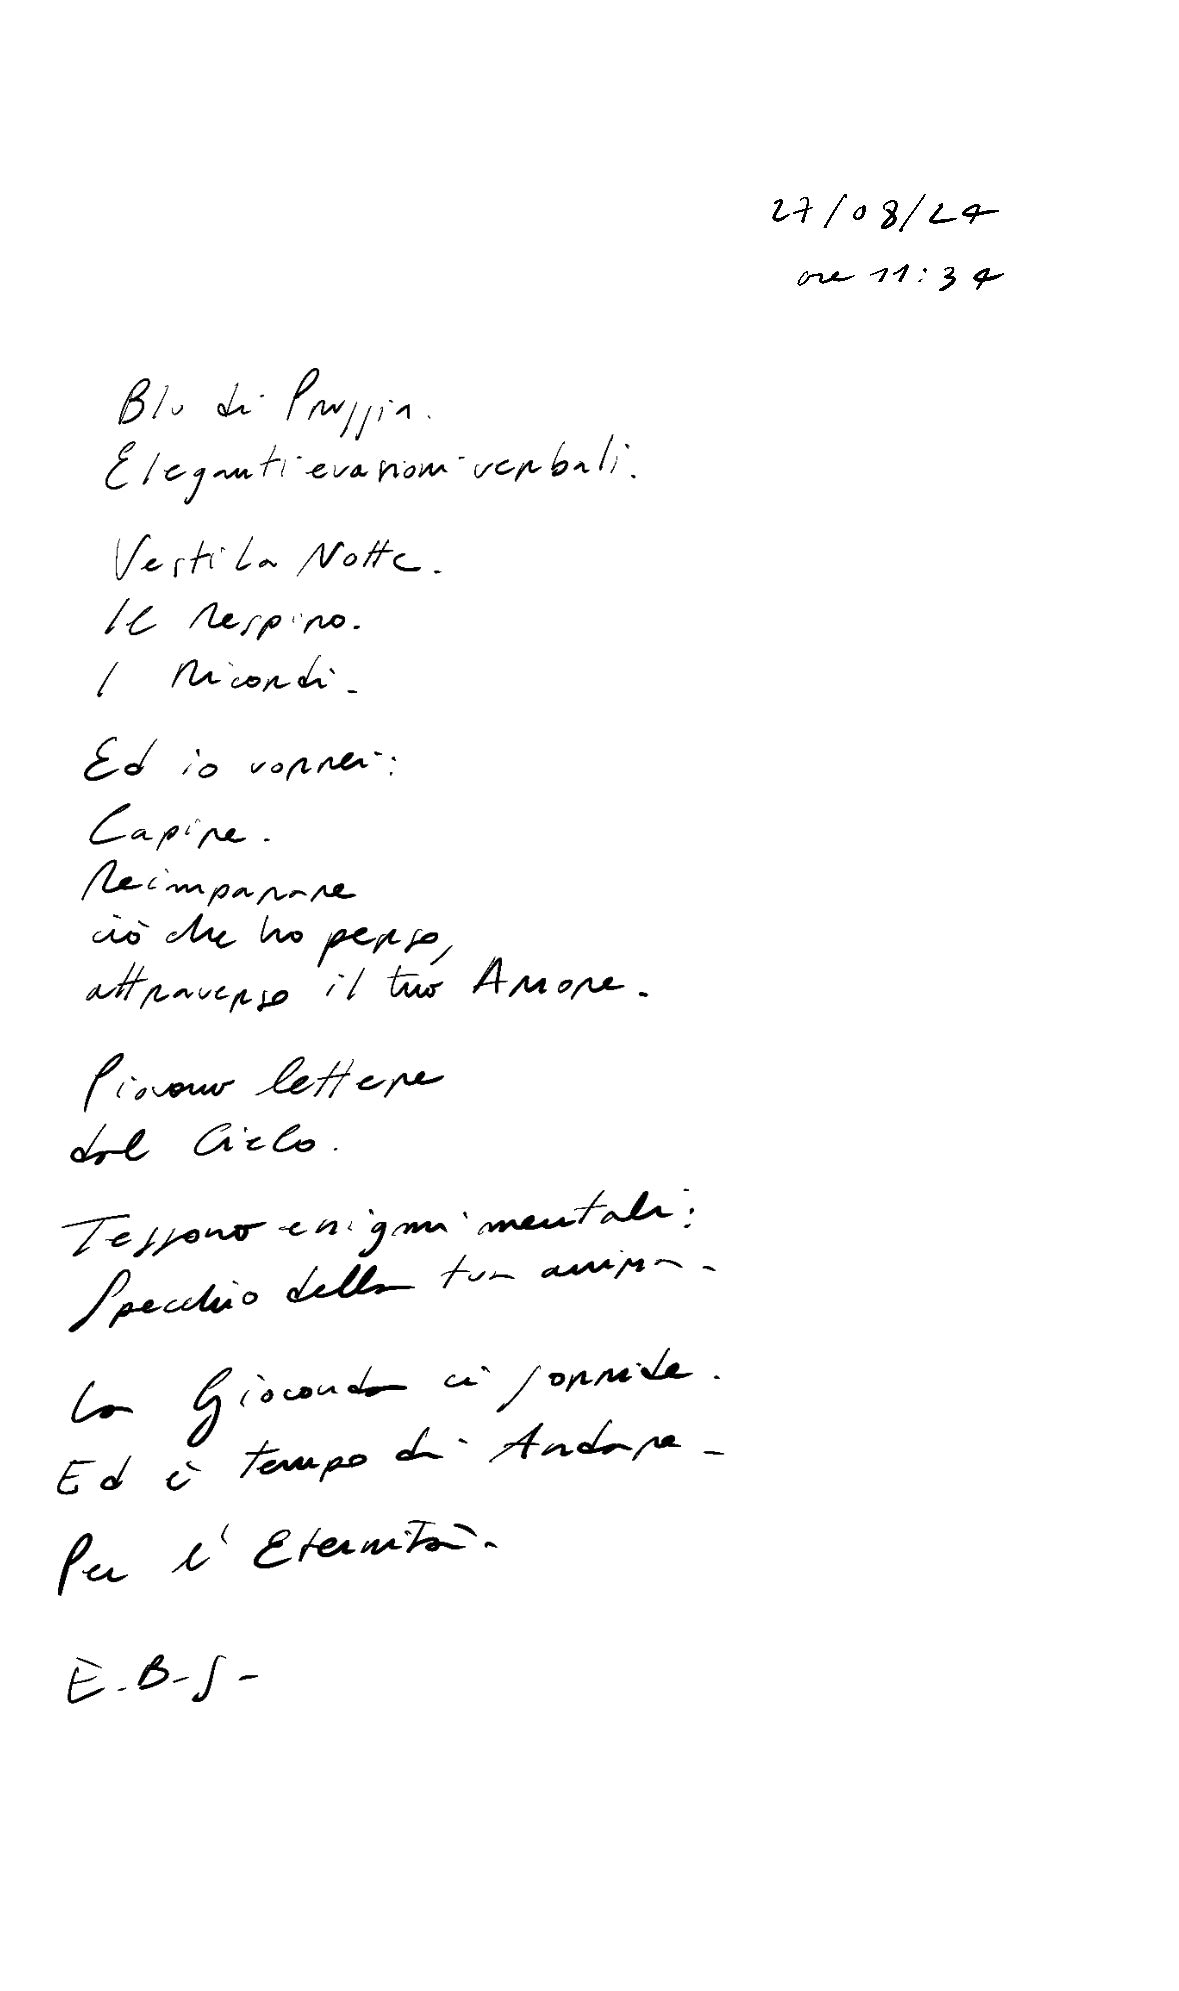 27/08/24
ore 11:34
Blu di Prussia.
Eleganti evasioni verbali.
Vesti la Notte.
Il Respiro.
I Ricordi.
Ed io vorrei:
Capire.
Reimparare
ciò che ho perso,
attraverso il tuo Amore.
Piovono lettere
dal Cielo.
Tessono enigmi mentali:
Specchio della tua anima.
La Gioconda ci sorride.
Ed è tempo di Andare.
Per l'Eternità.
E.B.S.